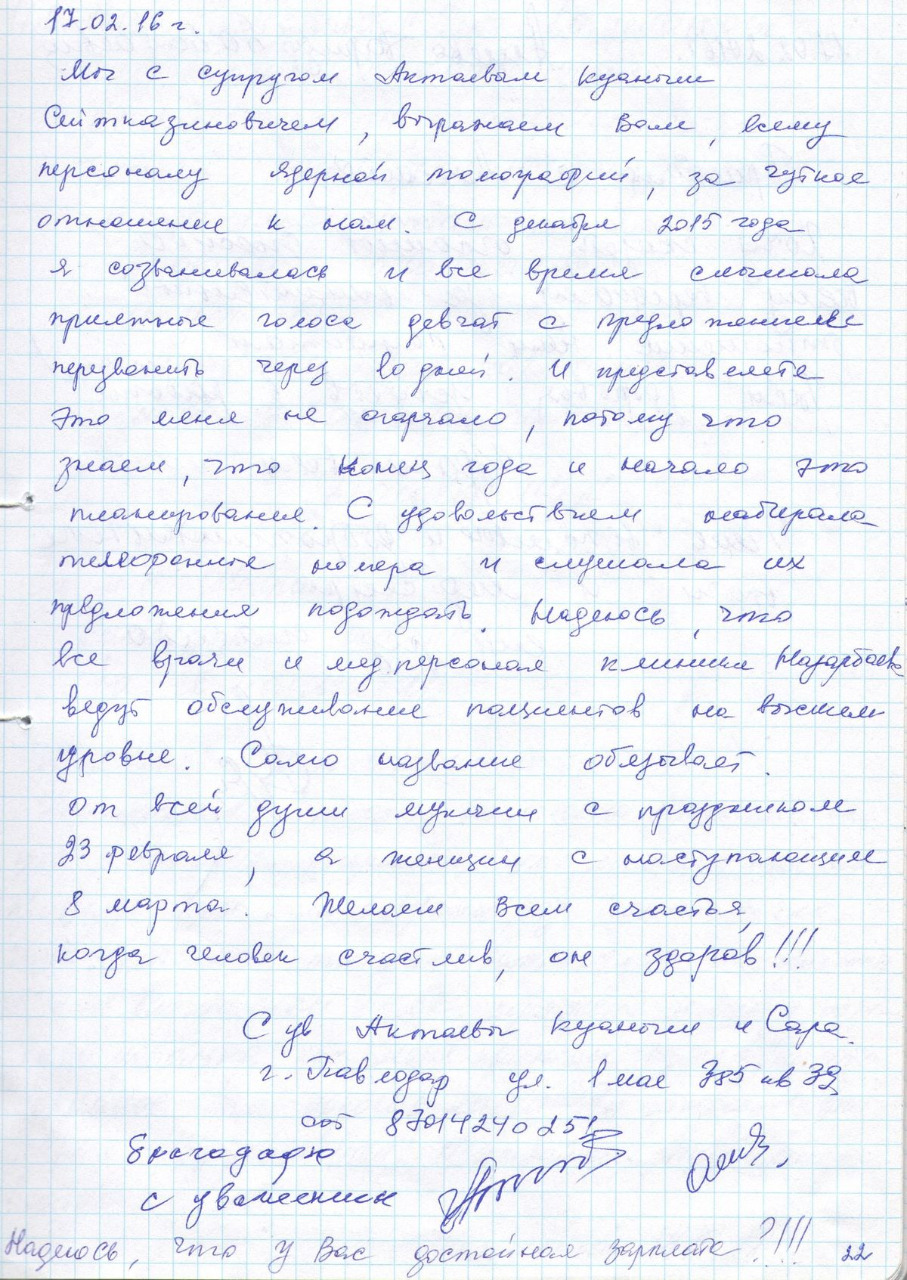 17.02.16 г.
Мы с супругом Актаевым Куаныш
Сейтказиновичем, выражаем Вам, всему
персоналу ядерной томографий, за чуткое
отношение к нам. С декабря 2015 года
я созванивалась и все время слышала
приятные голоса девчат с предложением
перезвонить через 10 дней. И представляете
это меня не огорчало, потому что
знаем, что конец года и начало это
планирования. С удовольствием набирала
телефонные номера и слушала их
предложения подождать. Надеюсь, что
все врачи и медперсонал клиники Назарбаева
ведут обслуживание пациентов на высшем
уровне. Само название обязывает.
От всей души мужчин с праздником
23 февраля, а женщин с наступающим
8 марта. Желаем Всем счастья,
когда человек счастлив, он здоров!!!
С ув Актаевы Куаныш и Сара.
г. Павлодар ул. 1 мая 385 кв 39
сот 87014240251
Благодарю
с уважением
Надеюсь, что у Вас достойная зарплата?!!!
22